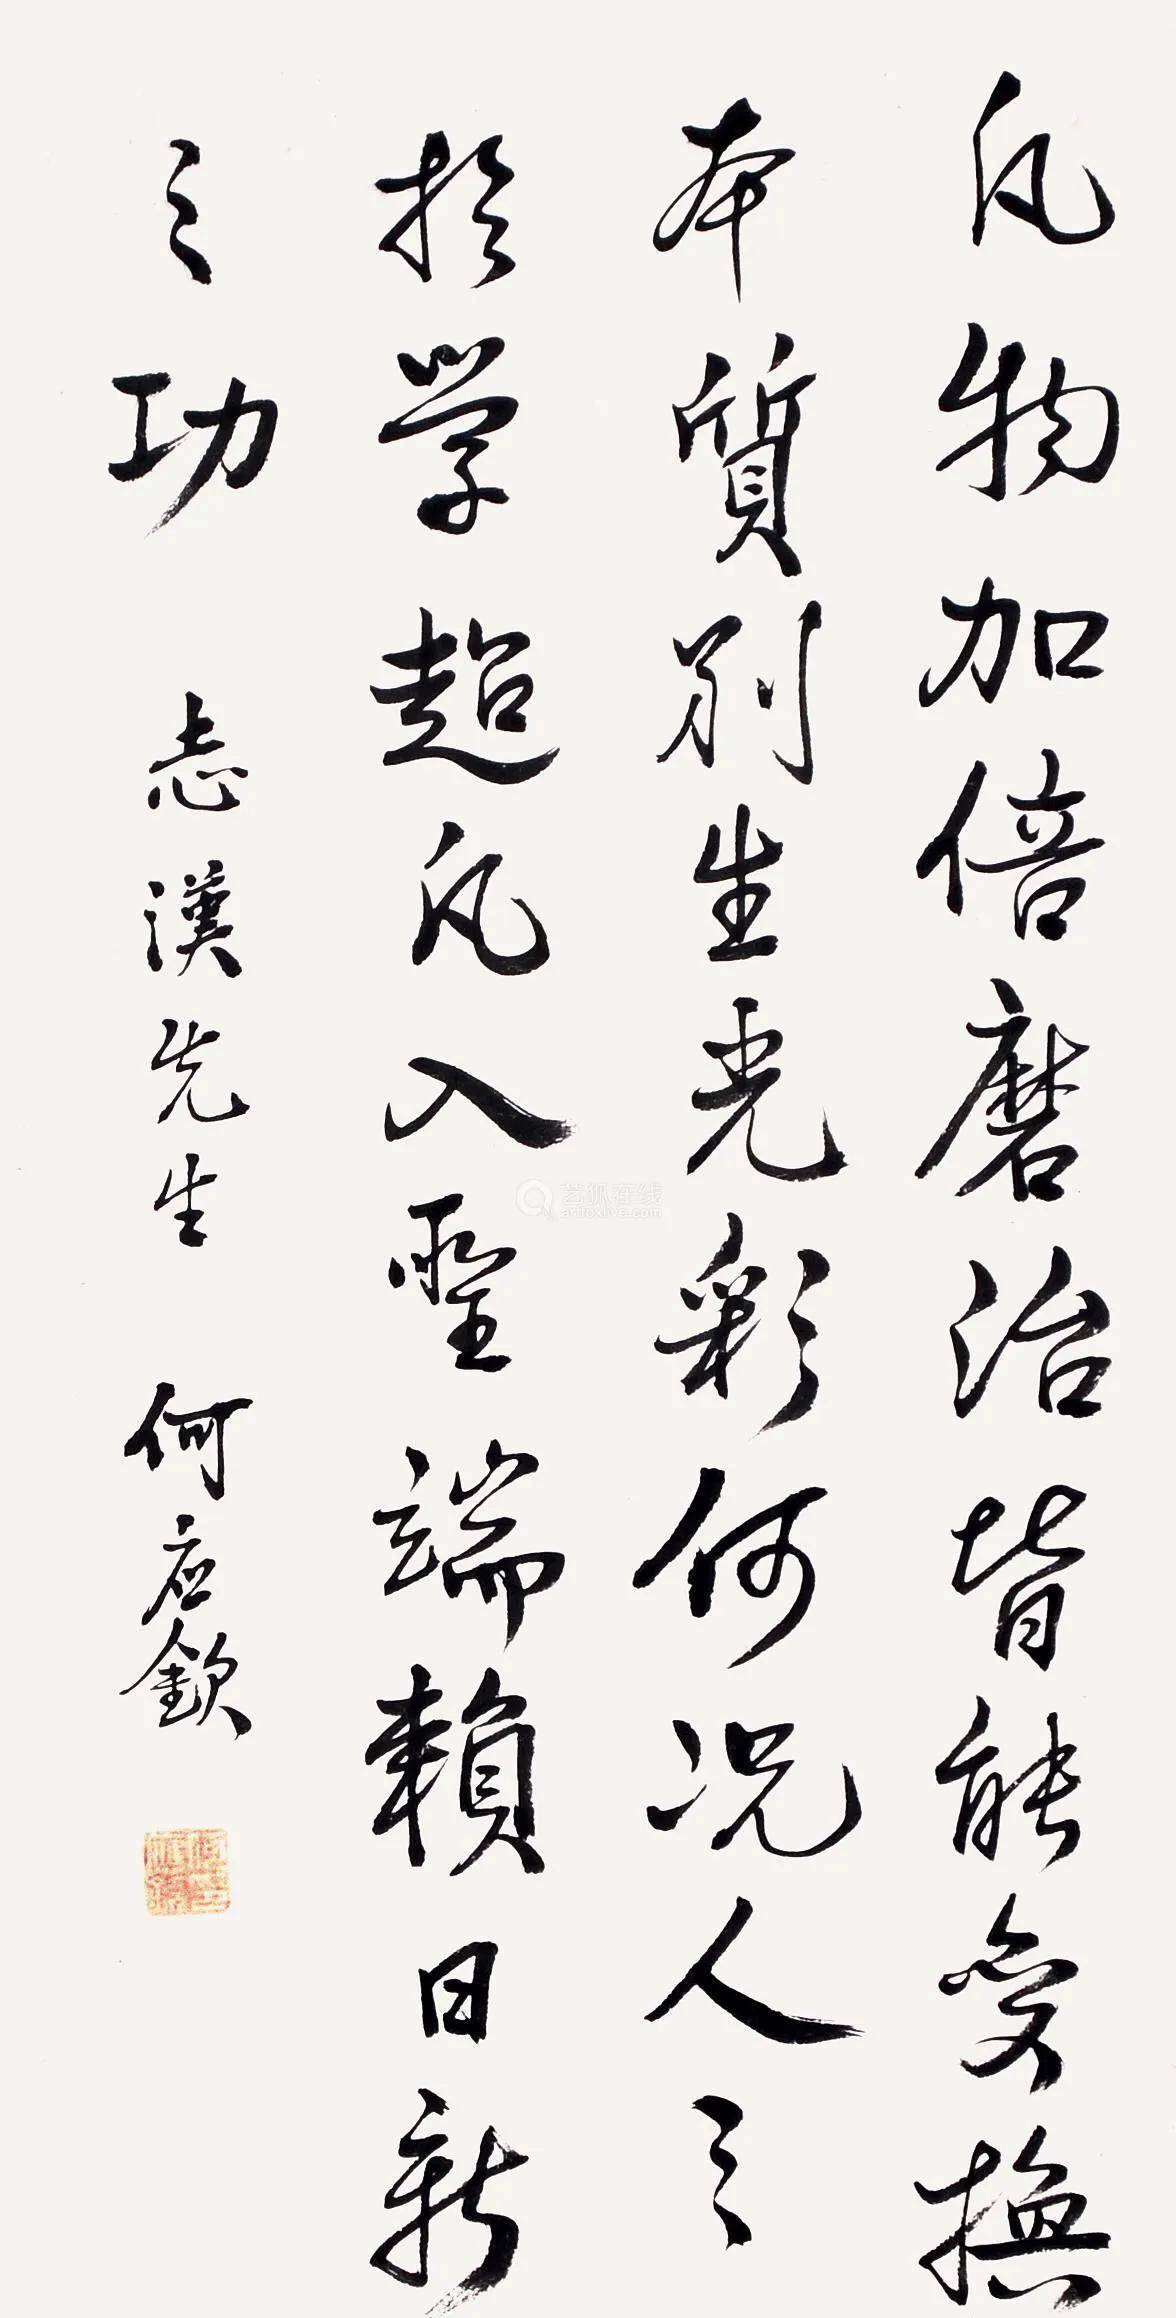 凡物加倍磨治皆能變換
本質別生光彩何况人之
於学超凡入聖端賴日新
之功
志漢先生 何应欽
艺狐在线
artfoxlive.com